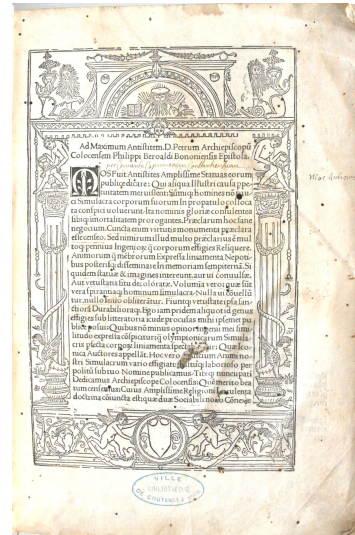 Ad Maximum Antistitem. D. Petrum Archiepiscopū
Colocensem Philippi Beroaldi Bononiensis Epistola.
MOS Fuit Antistes Amplissime Statuas eorum
publice dicare: Qui aliqua Illustri causa ppe
tuitatem meruissent: Simulq; Homines nō
ci Simulacra corporum suorum in propatulo colloca
ta conspici uoluerunt: ita nominis gloriæ consulentes
sibiq; īmortalitatem prorogantes. Præclarum hoc sane
negocium. Cuncta enim uirtutis monumenta præcla
ra esse censeo. Sed nimirum illud multo præclarius ē mul
toq; pennius Ingeniorū q̄ corporum effigies Relinquere.
Animorum q̄ mēbrorum Expressa liniamenta Nepoti
bus posterisq; disseminare In memoriam sempiternā. Si
quidem statuæ & imagines intereunt, aut ui conuulsæ.
Aut uetustatis situ decolóratæ. Volumīa uero; quæ sūt
uera spirantiaq; hominum simulacra. Nulla ui conuellū
tur, nullo senio obliterātur. Fiuntq; uetustate ipsa san
ctiora Durabilioraq;. Ego iampridem aliquot id genus
effigies sub litteratoria
blice posui: Quibus nō minus opinor ingenii mei simi
litudo expressa cōspicitur q̄ olympionicarum Simula
cris
nica Auctores appellāt. Hoc vero
stri Simulacrum uario effigiatu laborioso per
politū
Dedicamus Archiepiscope Colocensis: Quē merito bea
tum censemus: Cuius Amplissime Religioni luculenta
doctrina cōiuncta est: quæ duæ Sociabili nexo Cōnexæ
VILLE
BIBLIOTHÈQUE
DE COUTANCES